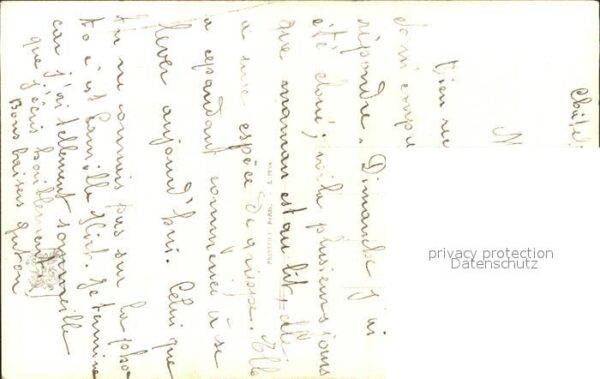 Châtel
N
Bien re
Je n'ai compr
répondre. Dimanche j'ai
été cloué; voilà plusieurs jours
que maman est au lit, elle
a une espèce de grippe. Elle
a cependant commencé à se
lever aujourd'hui. Celui que
tu ne connais pas sur la pho-
to c'est Camille. Je termine
car j'ai tellement sommeille
que j'écris horriblement
Bons baisers
privacy protection
Datenschutz